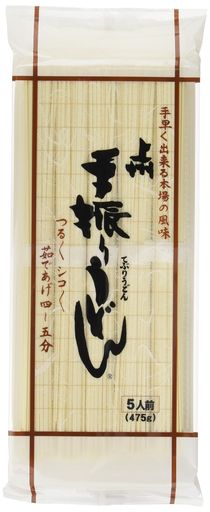 手早く出来る本場の風味
上州
手振りうどん
てぶりうどん
つる〱シコ〱
茹であげ四〜五分
5人前
(475g)